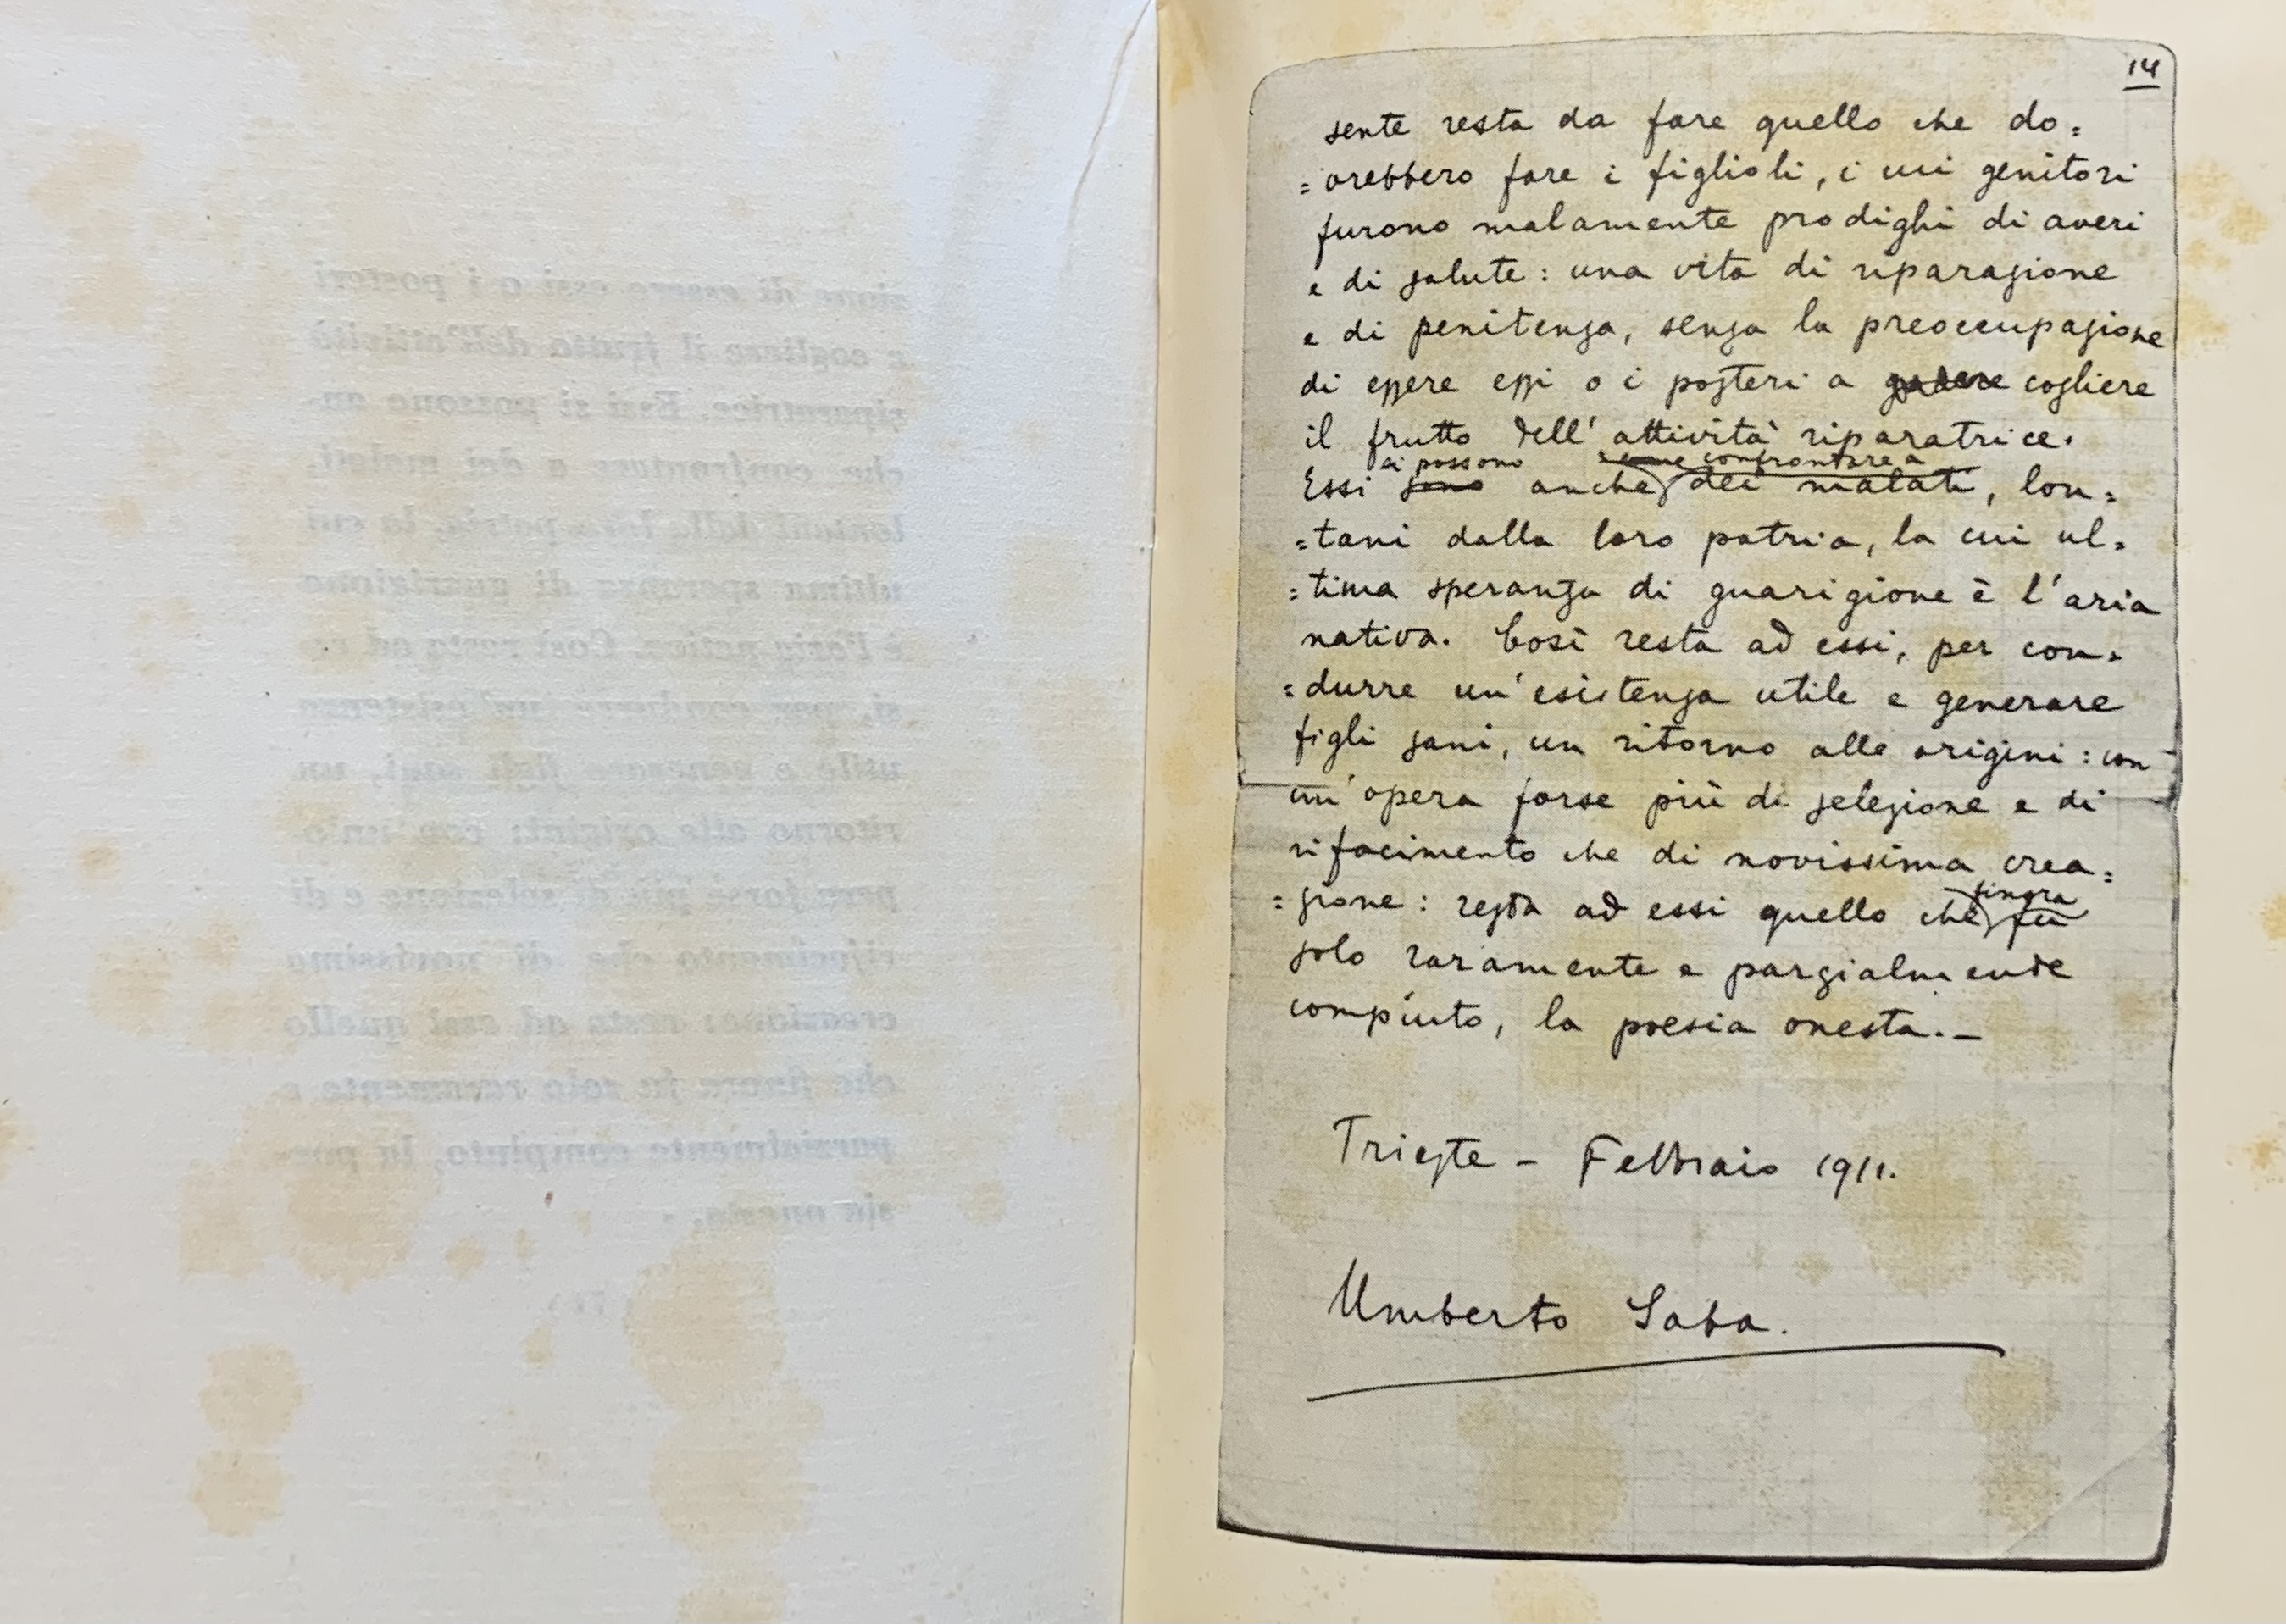 14
sente resta da fare quello che do=
=vrebbero fare i figlioli, i cui genitori
furono malamente prodighi di averi
e di salute: una vita di riparazione
e di penitenza, senza la preoccupazione
di essere essi o i posteri a godere cogliere
il frutto dell'attività riparatrice.
si possono come confrontare a
Essi sono anche dei malati, lon=
=tani dalla loro patria, la cui ul=
=tima speranza di guarigione è l'aria
nativa. Così resta ad essi, per con=
=durre un'esistenza utile e generare
figli sani, un ritorno alle origini: con
un'opera forse più di selezione e di
rifacimento che di novissima crea=
finora
=zione: resta ad essi quello che fu
solo raramente e parzialmente
compiuto, la poesia onesta.—
Trieste – Febbraio 1911.
Umberto Saba.